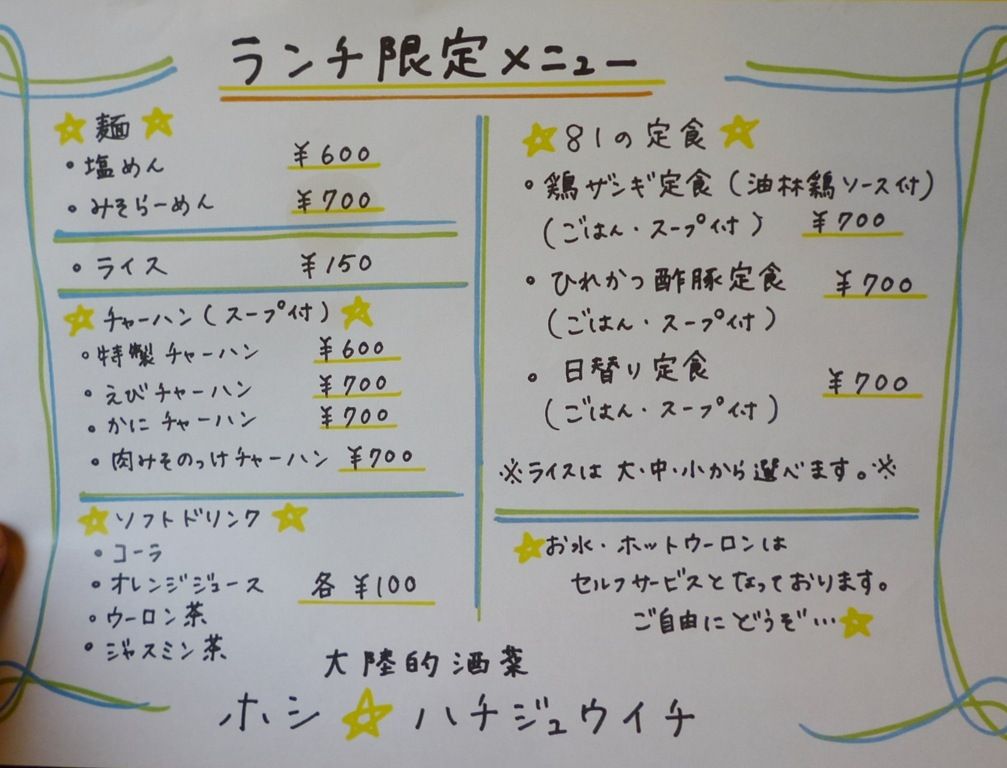 ランチ限定メニュー
☆麺☆
・塩めん ¥600
・みそらーめん ¥700
・ライス ¥150
☆チャーハン(スープ付)☆
・特製チャーハン ¥600
・えびチャーハン ¥700
・かにチャーハン ¥700
・肉みそのっけチャーハン ¥700
☆ソフトドリンク☆
・コーラ
・オレンジジュース 各¥100
・ウーロン茶
・ジャスミン茶
☆81の定食☆
・鶏ザンギ定食(油林鶏ソース付)
(ごはん・スープ付) ¥700
・ひれかつ酢豚定食 ¥700
(ごはん・スープ付)
・日替り定食 ¥700
(ごはん・スープ付)
※ライスは大・中・小から選べます。※
☆お水・ホットウーロンは
セルフサービスとなっております。
ご自由にどうぞ…☆
大陸的酒菜
ホシ☆ハチジュウイチ